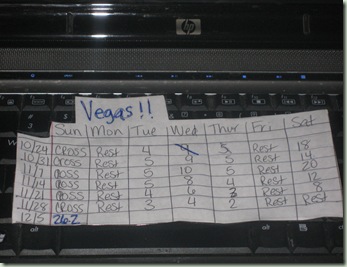 hp
Vegas!!
Sun Mon Tue Wed Thur Fri Sat
10/24 CROSS Rest 4 5 Rest 18
10/31 Cross Rest 5 9 5 Rest 14
11/7 CROSS Rest 5 10 5 Rest 20
11/14 CROSS Rest 5 8 4 Rest 12
11/21 CROSS Rest 4 6 3 Rest 8
11/28 CROSS Rest 3 4 2 Rest Rest
12/5 26.2